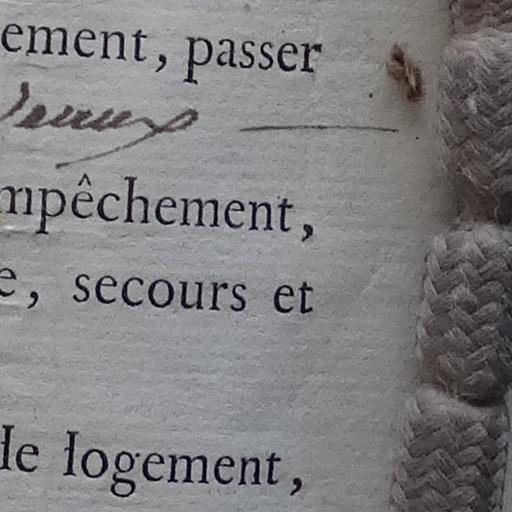 ement, passer
mpêchement,
e, secours et
le logement,